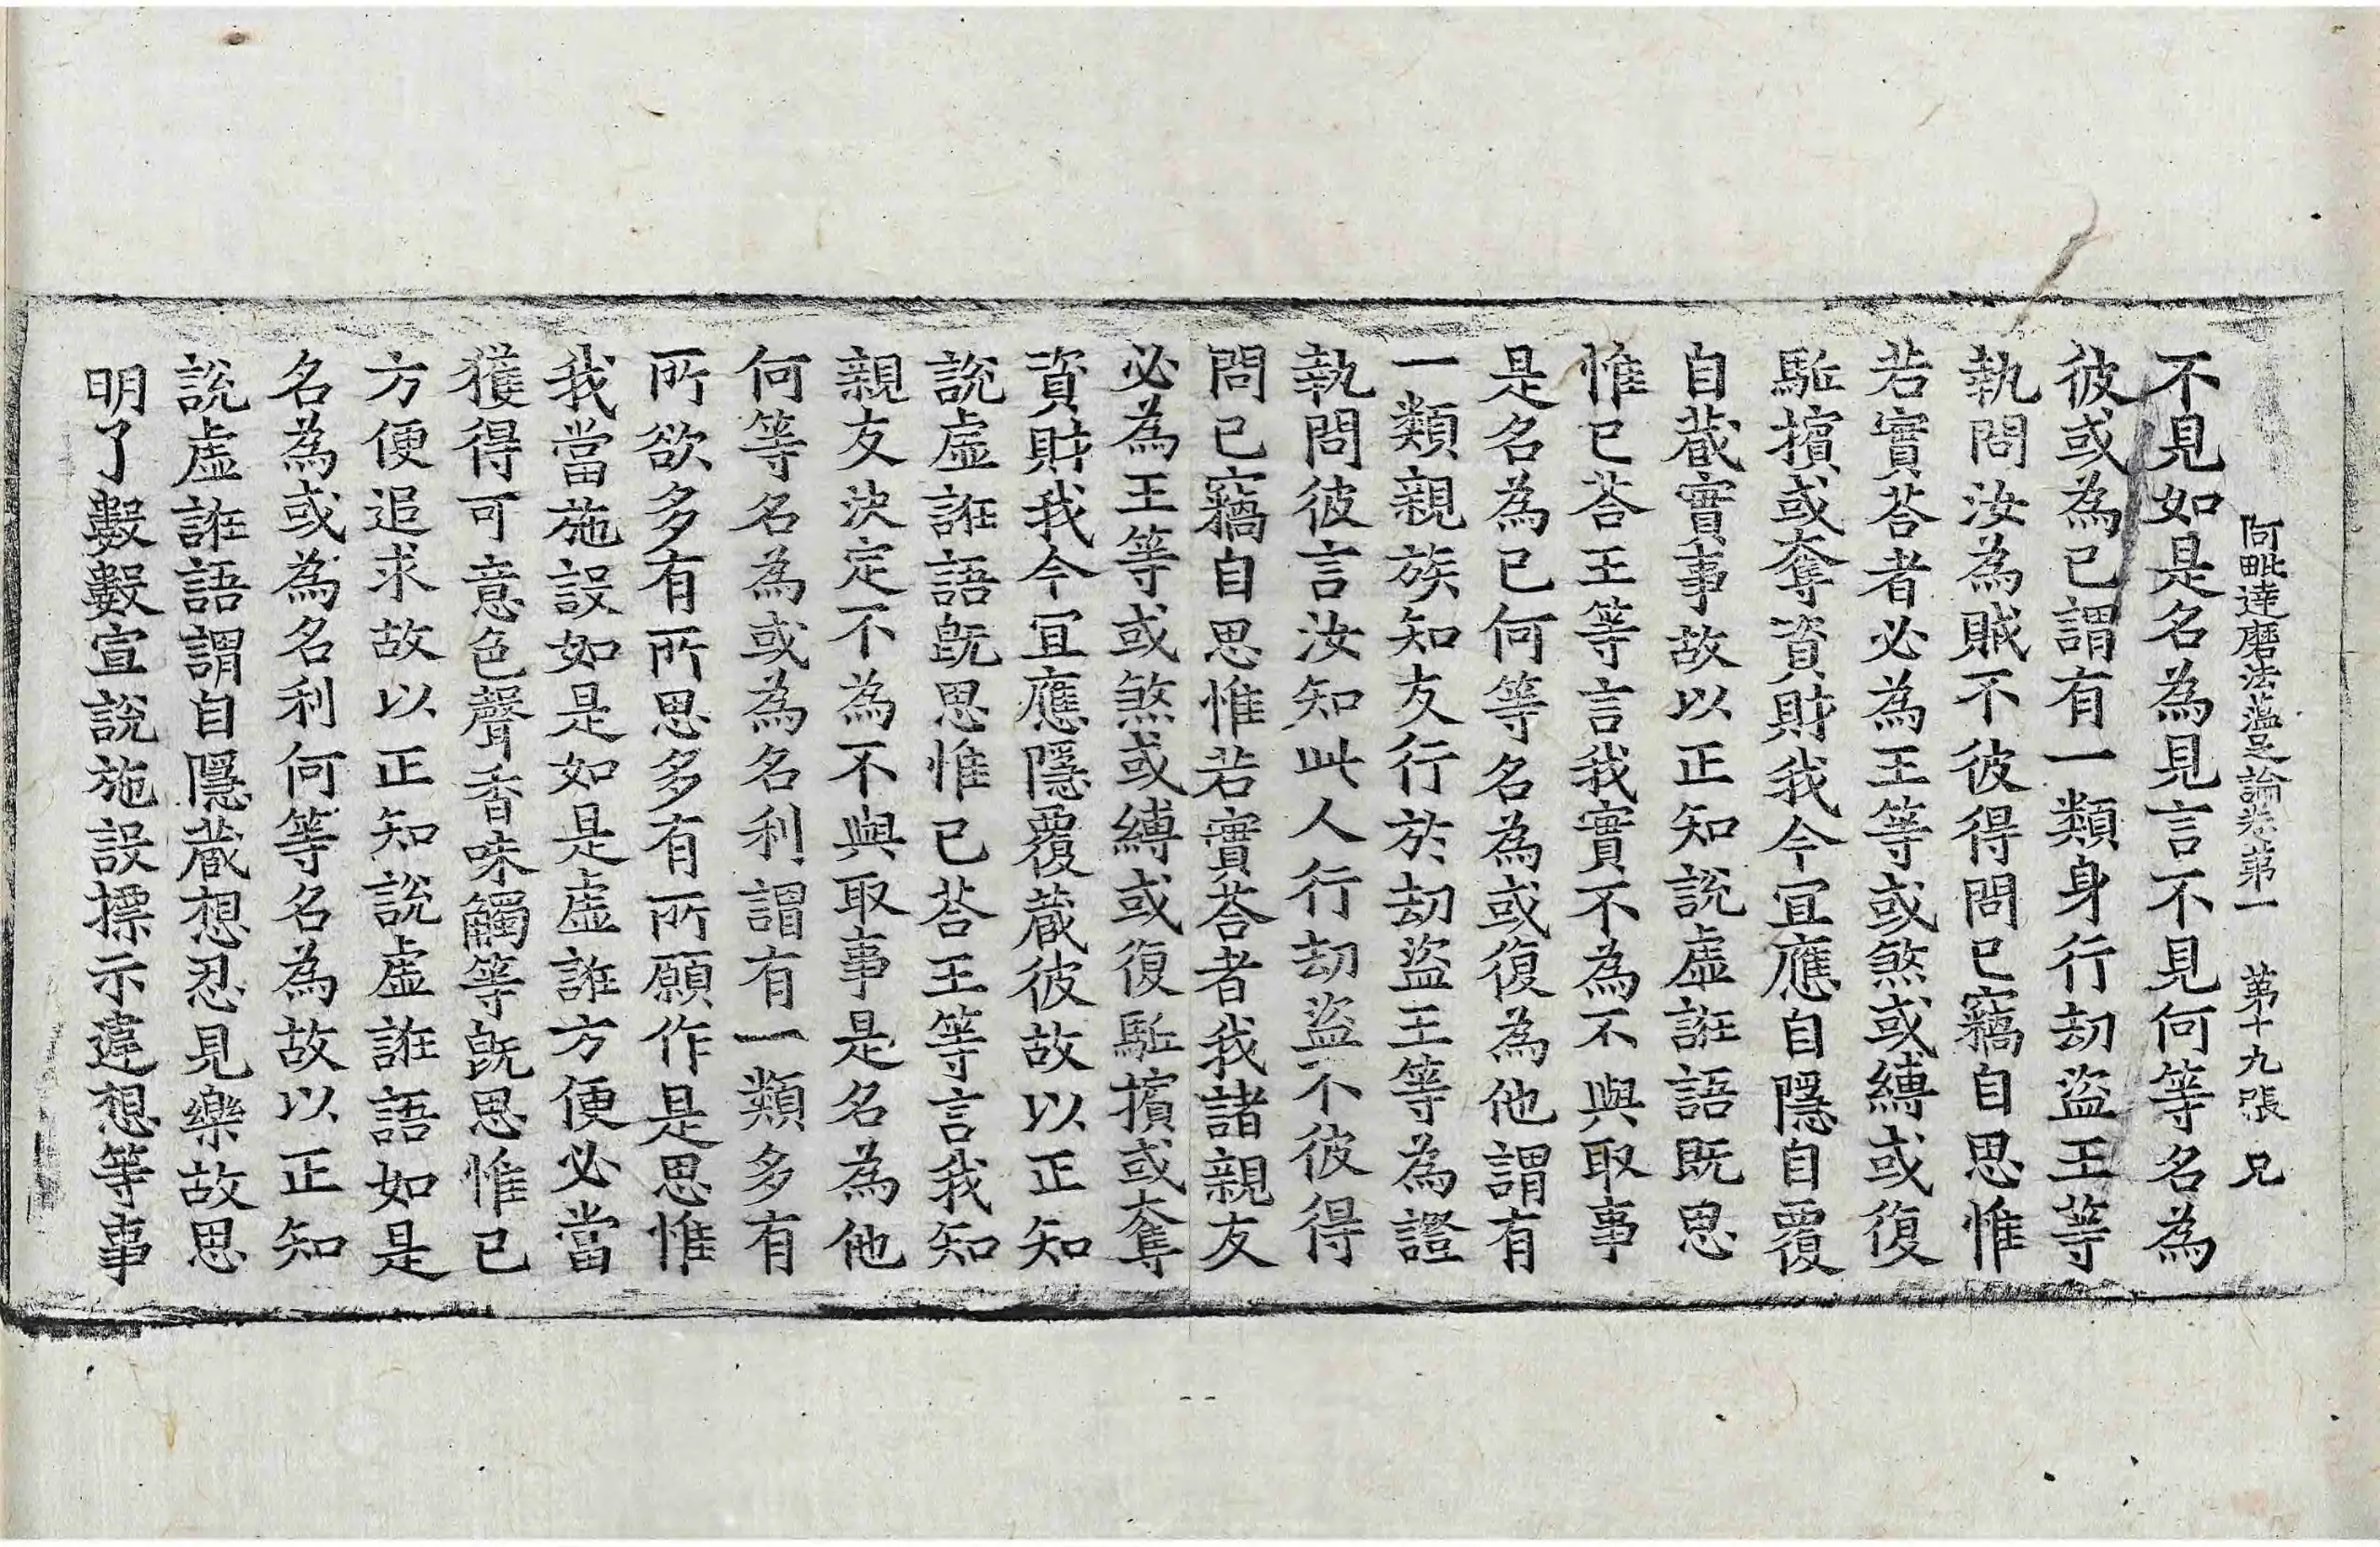 阿毗達磨法蘊足論卷第一 第十九張 兄
不見如是名為見言不見何等名為
彼或為己謂有一類身行劫盜王等
執問汝為賊不彼得問已竊自思惟
若實荅者必為王等或煞或縛或復
駈擯或奪資財我今冝應自隱自覆
自蔵實事故以正知說虛誑語既思
惟已荅王等言我實不為不與取事
是名為已何等名為或復為他謂有
一類親族知友行於劫盜王等為證
執問彼言汝知此人行劫盜不彼得
問已竊自思惟若實荅者我諸親友
必為王等或煞或縛或復駈擯或奪
資財我今冝應隱覆蔵彼故以正知
說虛誑語旣思惟已荅王等言我知
親友決定不為不與取事是名為他
何等名為或為名利謂有一類多有
所欲多有所思多有所願作是思惟
我當施設如是如是虛誑方便必當
獲得可意色聲香味觸等旣思惟已
方便追求故以正知說虛誑語如是
名為或為名利何等名為故以正知
說虛誑語謂自隱蔵想忍見樂故思
明了數數宣說施設摽示違想等事